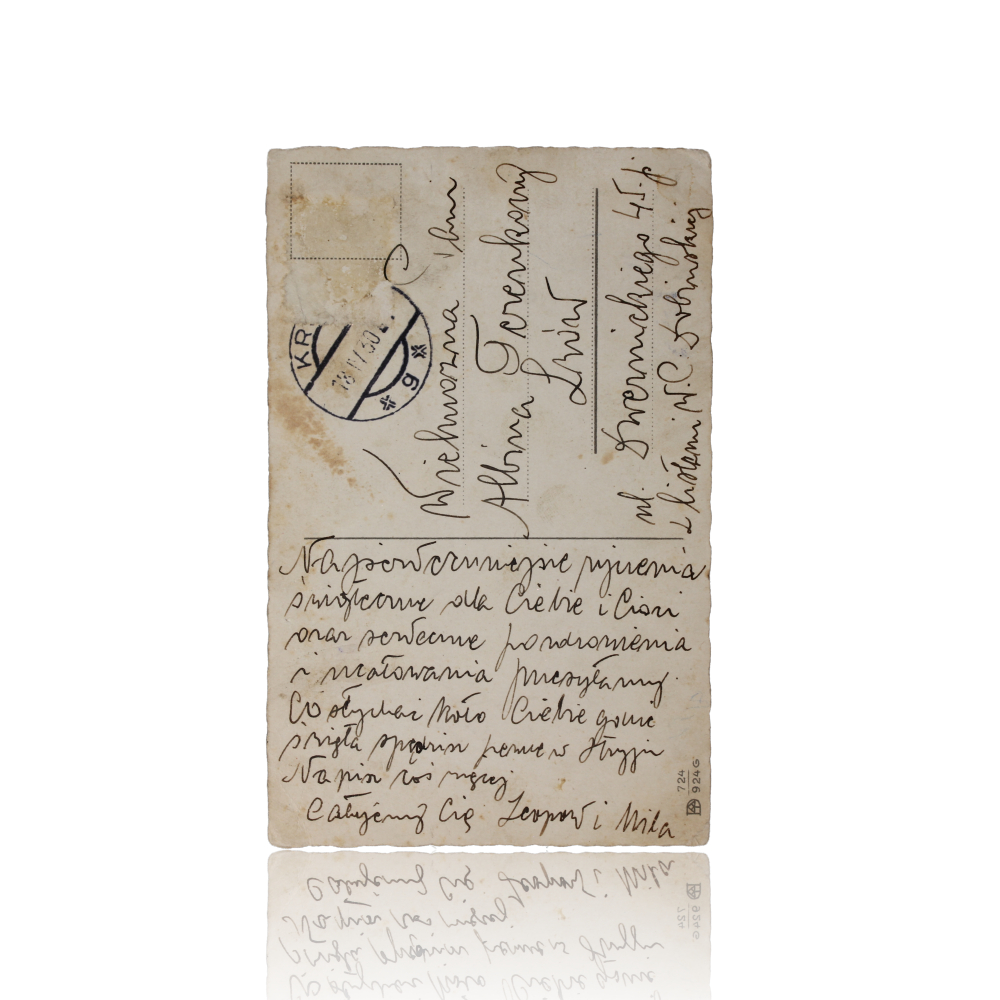 KR
18 IV 30
* 9 *
Wielmożna
Albina Terenkoczy
Lwów
ul. Dwernickiego 45. p
z listami W.P. Dolińskiej
Najserdeczniejsze życzenia
świąteczne dla Ciebie i Cioci
oraz serdeczne pozdrowienia
i ucałowania przesyłamy.
Co słychać koło Ciebie gdzie
święta spędzisz pewnie w Stryju
Napisz coś więcej
Całujemy Cię Leopold i Mila
724
924G